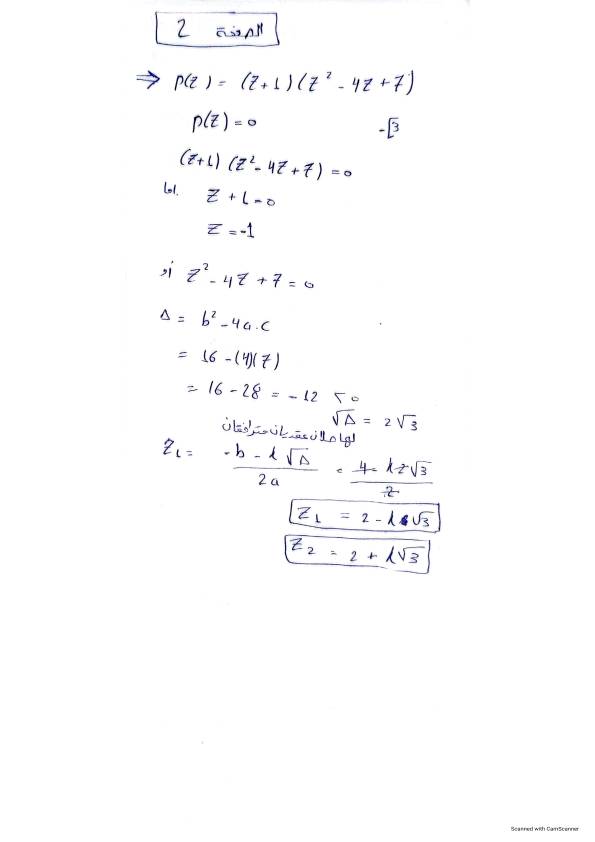 الصفحة 2
⇒ P(Z) = (Z+1)(Z² - 4Z + 7)
P(Z) = 0
-[3
(Z+1)(Z² - 4Z + 7) = 0
إما Z + 1 = 0
Z = -1
أو Z² - 4Z + 7 = 0
Δ = b² - 4a.c
= 16 - (4)(7)
= 16 - 28 = -12 < 0
√Δ = 2√3
لها حلان عقديان مترافقان
Z₁ = -b - i√Δ / 2a = 4 - i2√3 / 2
Z₁ = 2 - i√3
Z₂ = 2 + i√3
Scanned with CamScanner